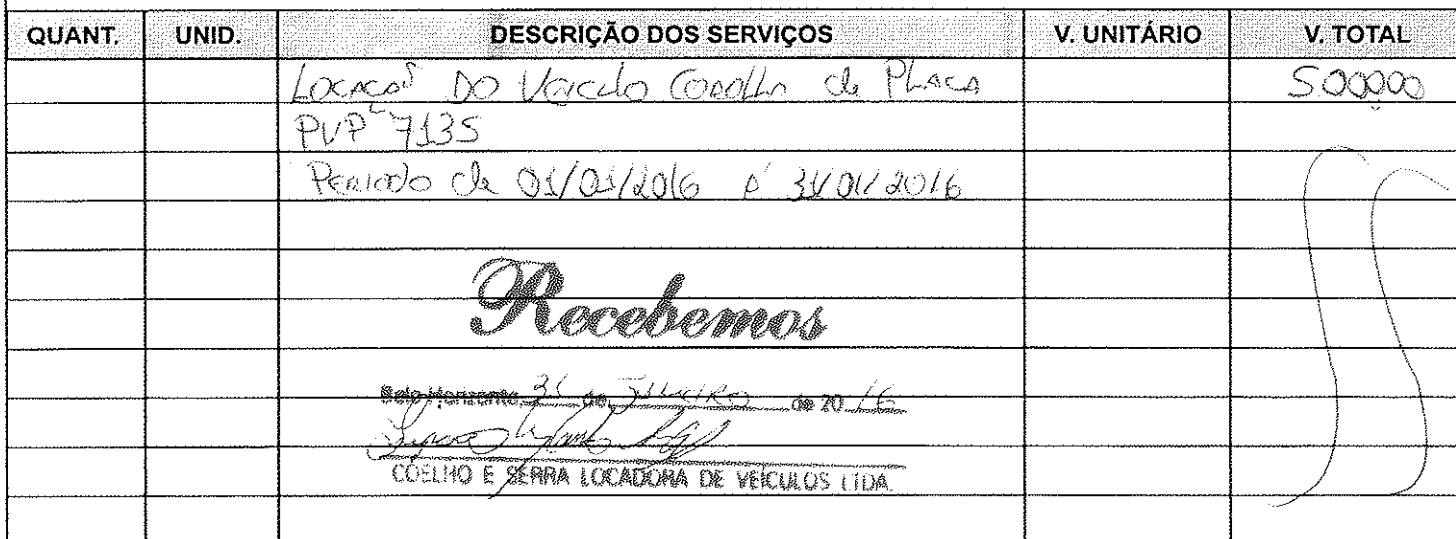 QUANT. UNID. DESCRIÇÃO DOS SERVIÇOS V. UNITÁRIO V. TOTAL
Locação do Veiculo Corolla de Placa 500000
PVP 7135
Periodo de 01/01/2016 A 31/01/2016
Recebemos
Belo Horizonte, 31 de Janeiro de 20 16
COELHO E SERRA LOCADORA DE VEÍCULOS LTDA.